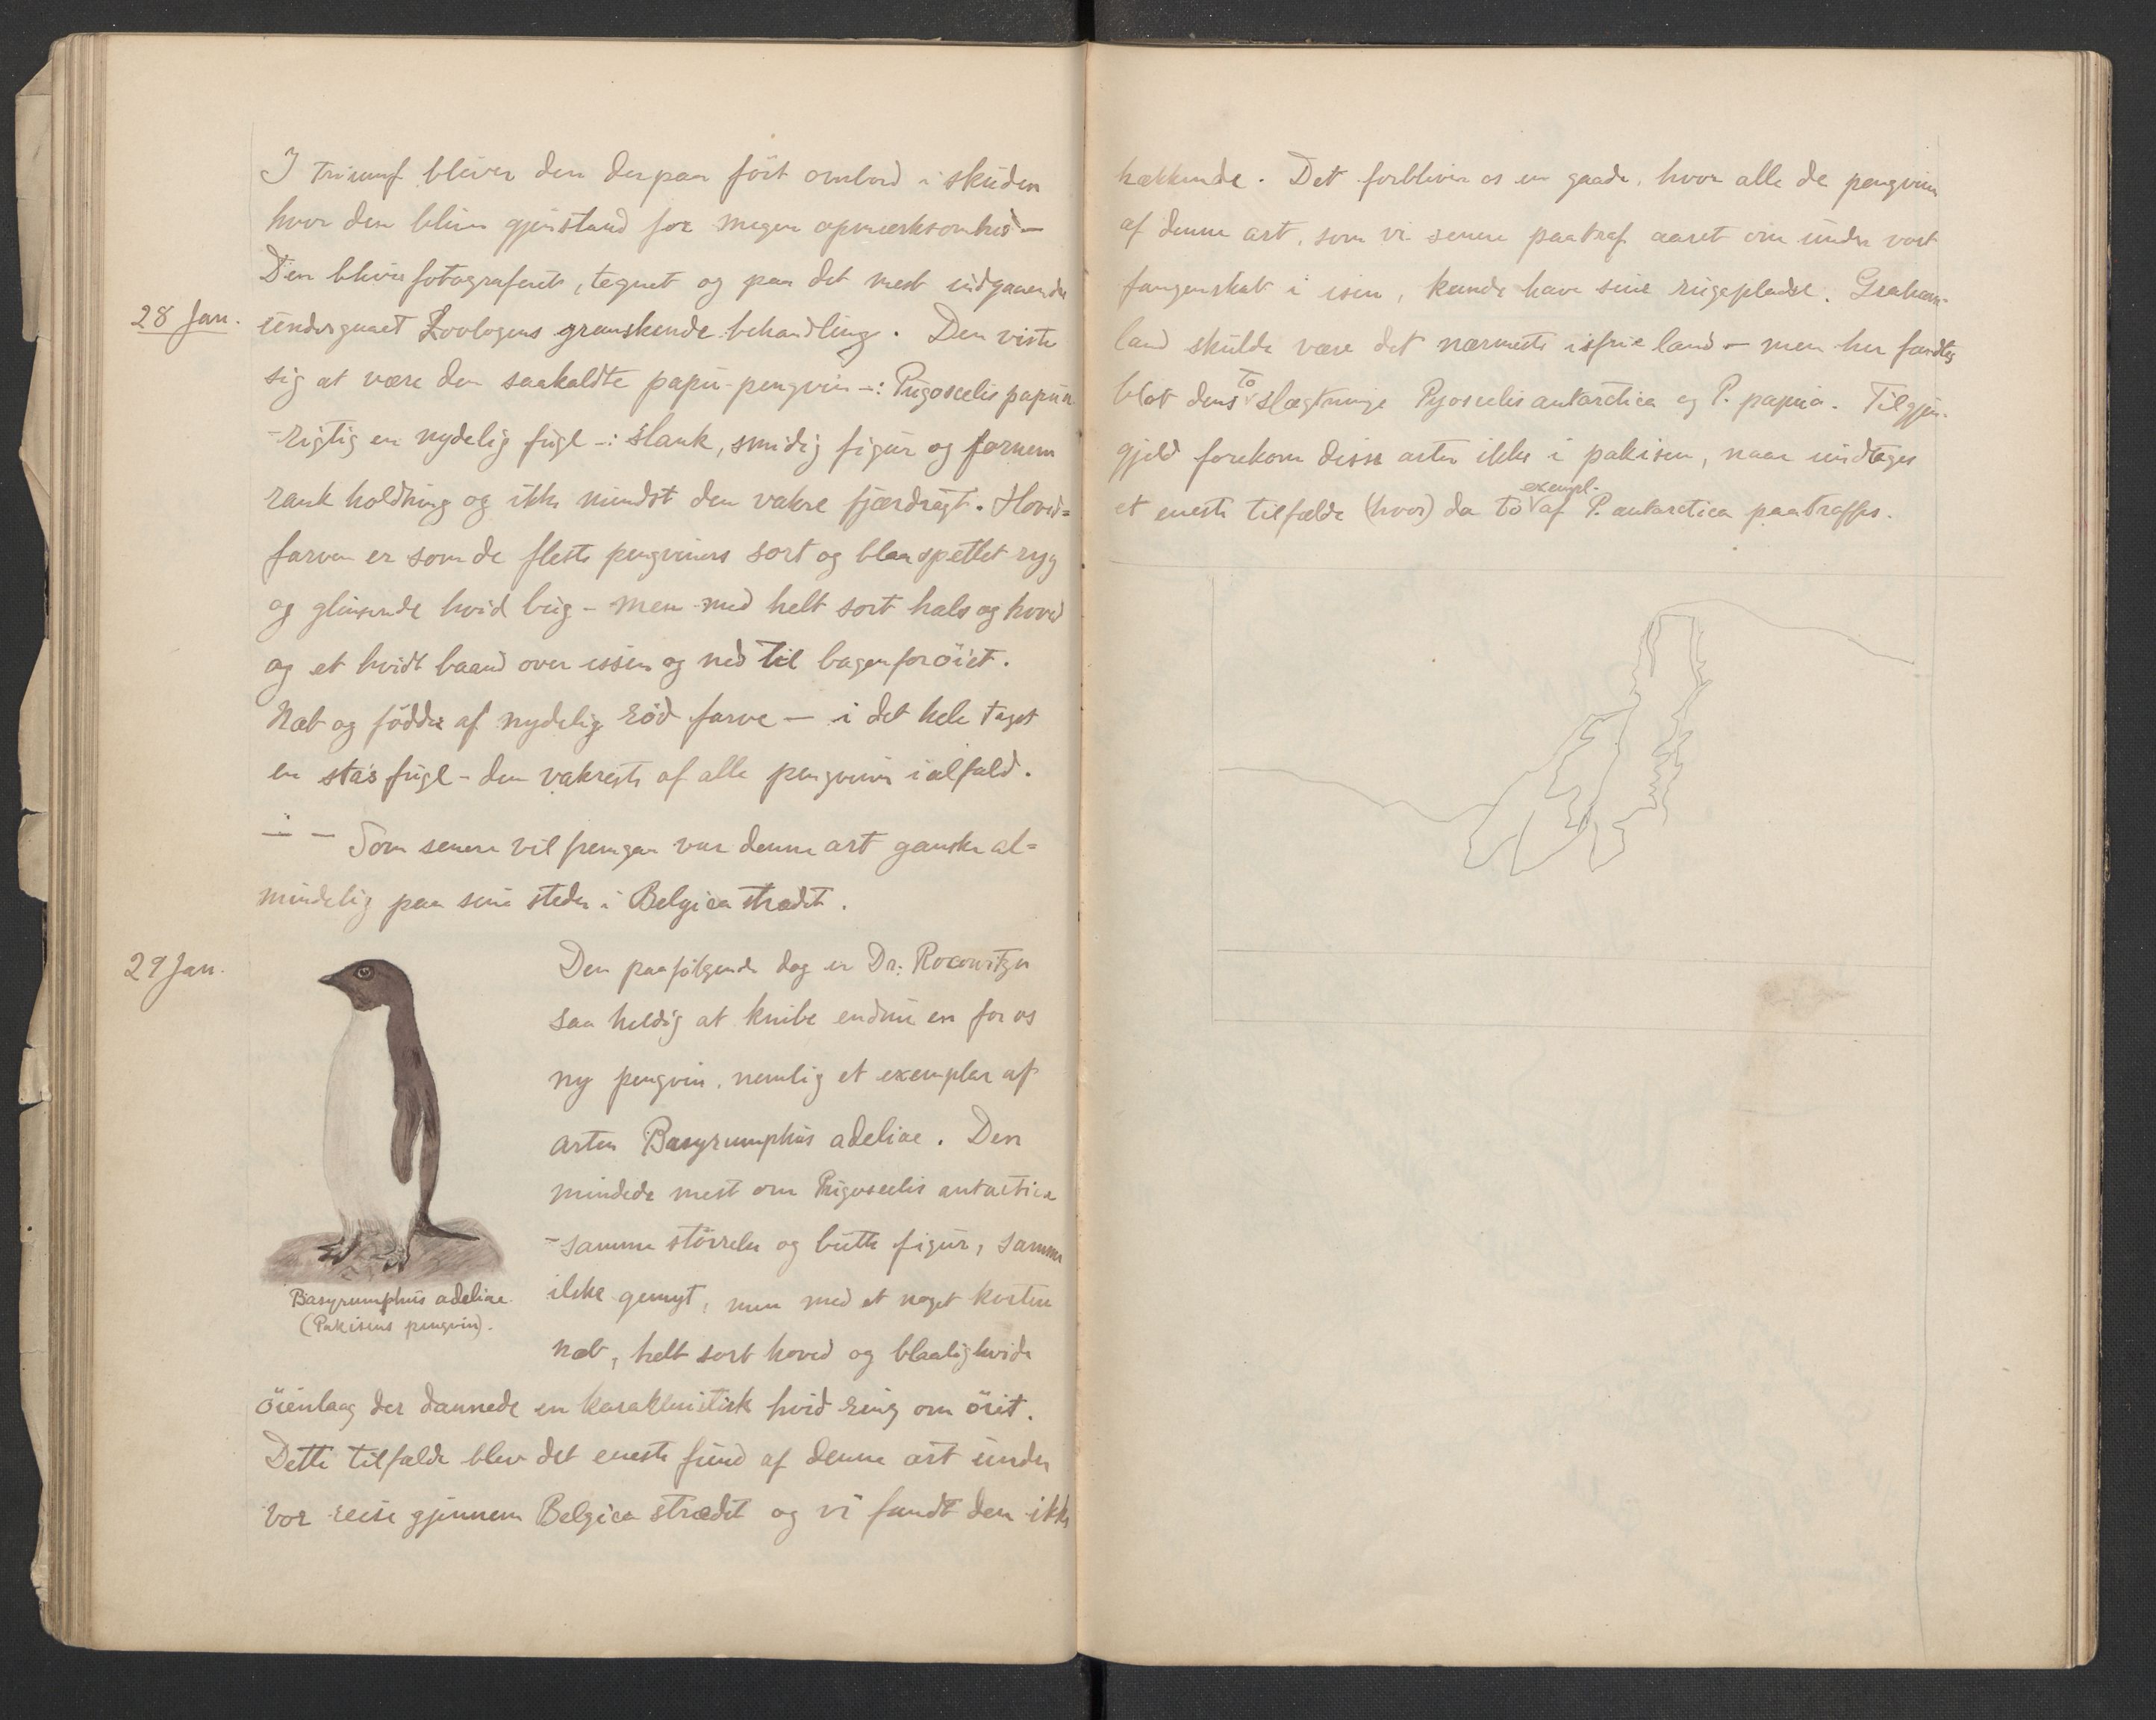 I triumf bliver den derpaa ført ombord i skuden
hvor den bliver gjenstand for megen opmerksomhed –
Den bliver fotograferet, tegnet og paa det mest indgaaende
28 Jan.
undergaaet Zoologens granskende behandling. Den viste
sig at være den saakaldte papu-pengvin –: Pugoscelis papua
– rigtig en nydelig fugl –: slank, smidig figur og fornem
rank holdning og ikke mindst den vakre fjærdragt. Hoved=
farven er som de fleste pengviners sort og blaaspettet ryg
og glinsende hvid bug – men med helt sort hals og hoved
og et hvidt baand over issen og ned til bagenfor öiet.
Næb og födder af nydelig röd farve – i det hele taget
en stas fugl – den vakreste af alle pengviner ialfald.
– – Som senere vil fremgaa var denne art ganske al=
mindelig paa sine steder i Belgica strædet.
29 Jan.
Den paafølgende dag er Dr. Racowitza
saa heldig at knibe endnu en for os
ny pengvin, nemlig et exemplar af
arten Basyrumphus adeliae. Den
mindede mest om Pugoscelis antarctica
– samme störrelse og butte figur, samme
ilske gemyt, men med et noget kortere
næb, helt sort hoved og blaalighvide
öienlaag der dannede en karakteristisk hvid ring om öiet.
Dette tilfælde blev det eneste fund af denne art under
vor reise gjennem Belgica strædet og vi fandt den ikke
Basyrumphus adeliae.
(Pakisens pengvin).
hækkende. Det forbliver os en gaade, hvor alle de pengviner
af denne art, som vi senere paatraf aaret om under vort
fangenskab i isen, kunde have sine rugepladse. Graham-
land skulde være det nærmeste isfrie land – men her fandtes
blot dens to slægtninge Pyoscelis antarctica og P. papua. Tilgjen-
gjeld forekom disse arter ikke i pakisen, naar undtages
et eneste tilfælde (hvor) da to exempl. af P. antarctica paatraffes.